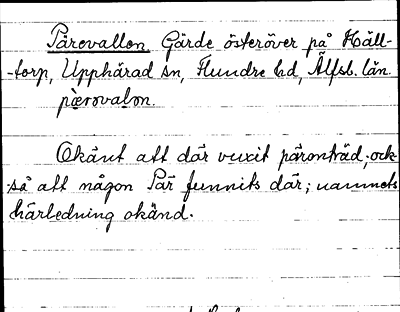 Pärevallen Gärde österöver på Häll-
-torp, Upphärad sn, Flundre hd, Älfsb. län.
pærovalɒn.
Okänt att där vuxit päronträd, ock-
så att någon Pär funnits där; namnets
härledning okänd.